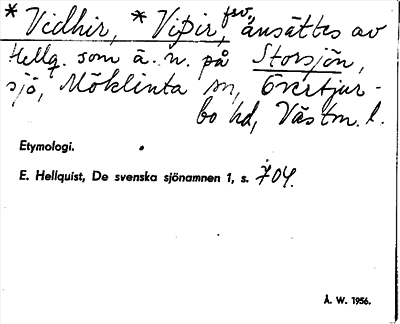 * Vidhir, * Viþir, fsv., ansättes av
Hellq. som ä. n. på Storsjön,
sjö, Möklinta sn, Övertjur-
bo hd, Västm. l.
Etymologi.
E. Hellquist, De svenska sjönamnen 1, s. 704.
Å. W. 1956.